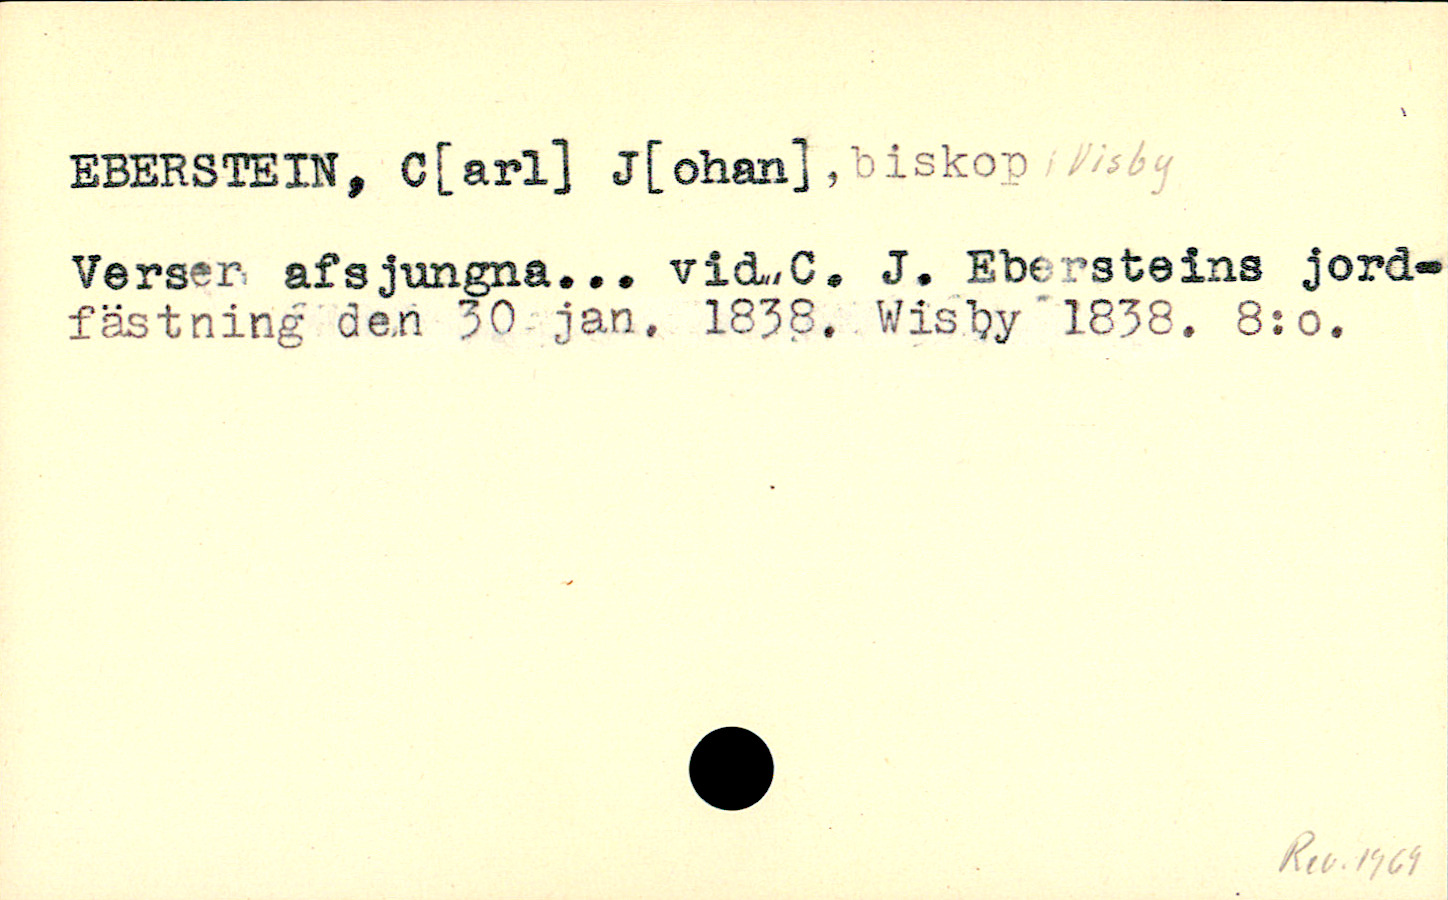 EBERSTEIN, C[arl] J[ohan], biskop i Visby
Verser afsjungna... vid C. J. Ebersteins jord-
fästning den 30 jan. 1838. Wisby 1838. 8:o.
Rev. 1969